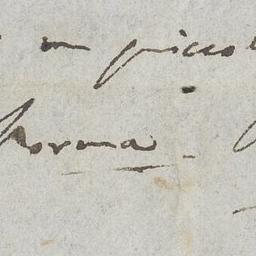 un piccol
Norma -